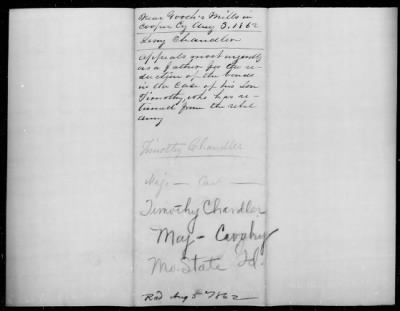 Near Gooch's Mills in
Cooper Cy Aug 3. 1862
Levy Chandler
Appeals most urgently
as a father for the re-
duction of the bonds
in the case of his son
Timothy, who has re-
turned from the rebel
army
Timothy Chandler
Maj— Cav—
Timothy Chandler
Maj— Cavalry
Mo. State Gd.
Rcd Aug 5th 1862